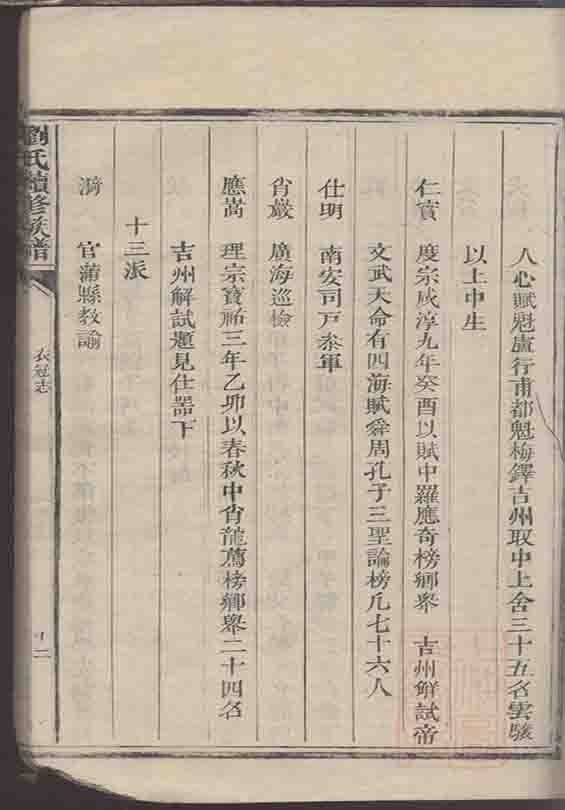 人心賦魁盧行甫都魁梅鐸吉州取中上舍三十五名雲駿
以上中生
仁實 度宗咸淳九年癸酉以賦中羅應奇榜鄉舉 吉州解試帝
文武天命有四海賦舜周孔子三聖論榜凡七十六人
仕明 南安司戸叅軍
省嚴 廣海巡檢
應嵩 理宗寶祐三年乙卯以春秋中肖龍薦榜鄉舉二十四名
吉州解試題見仕噐下
十三派
漪 官蒲縣教諭
劉氏續修族譜
衣冠志
十二